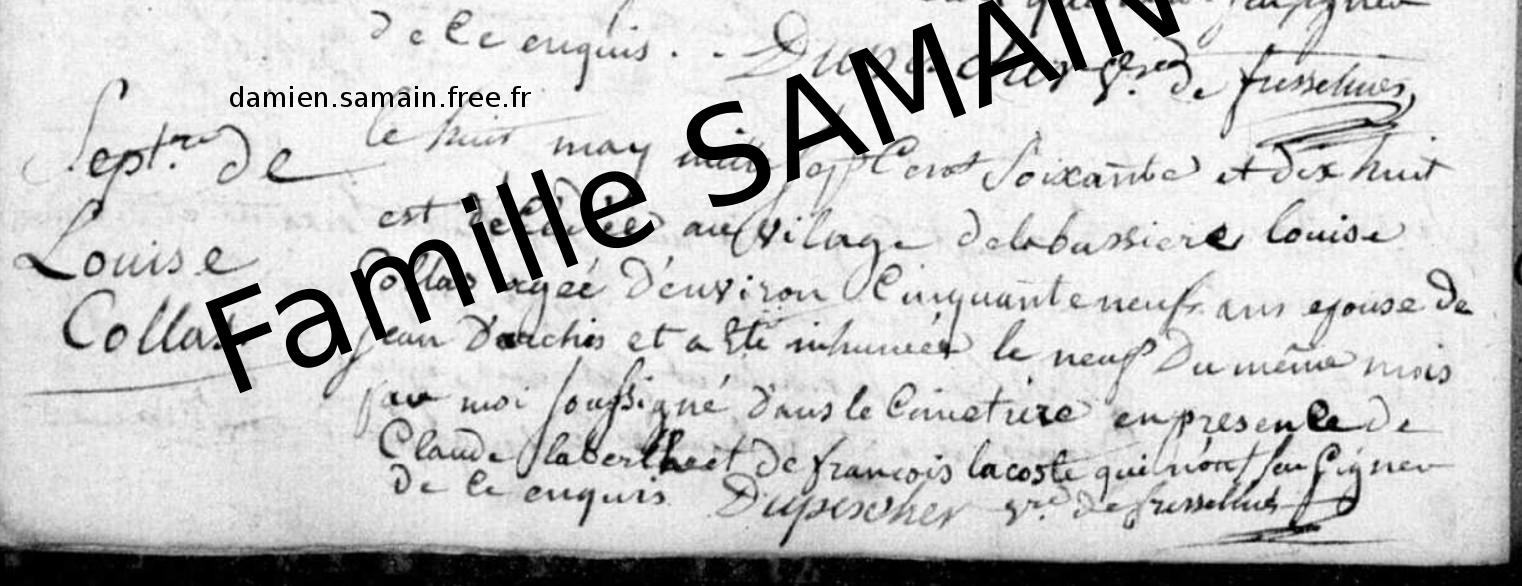 de ce enquis . . Dupescher v.re de fresselines
damien.samain.free.fr
Famille SAMAIN
Sept.re de
Louise
Collas
le huit may mille sept Cent Soixante et dix huit
est decedée au vilage delabussiere louise
Collas agée d'environ Cinquante neuf ans epouse de
jean Darchis et a Eté inhumée le neuf Du même mois
par moi soussigné dans le Cimetiere en presence de
Claude laberthe et de françois lacoste qui n'ont su signer
de ce enquis Dupescher v.re de fresselines